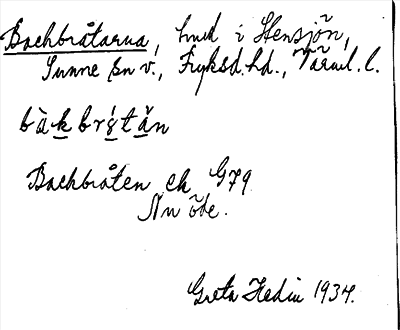 Backbråtarna, hmd i Stensjön,
Sunne sn v., Fryksd. hd., Värml. l.
bàkbrśtăn
Backbråten ek G79
Nu öde.
Greta Hedin 1934.